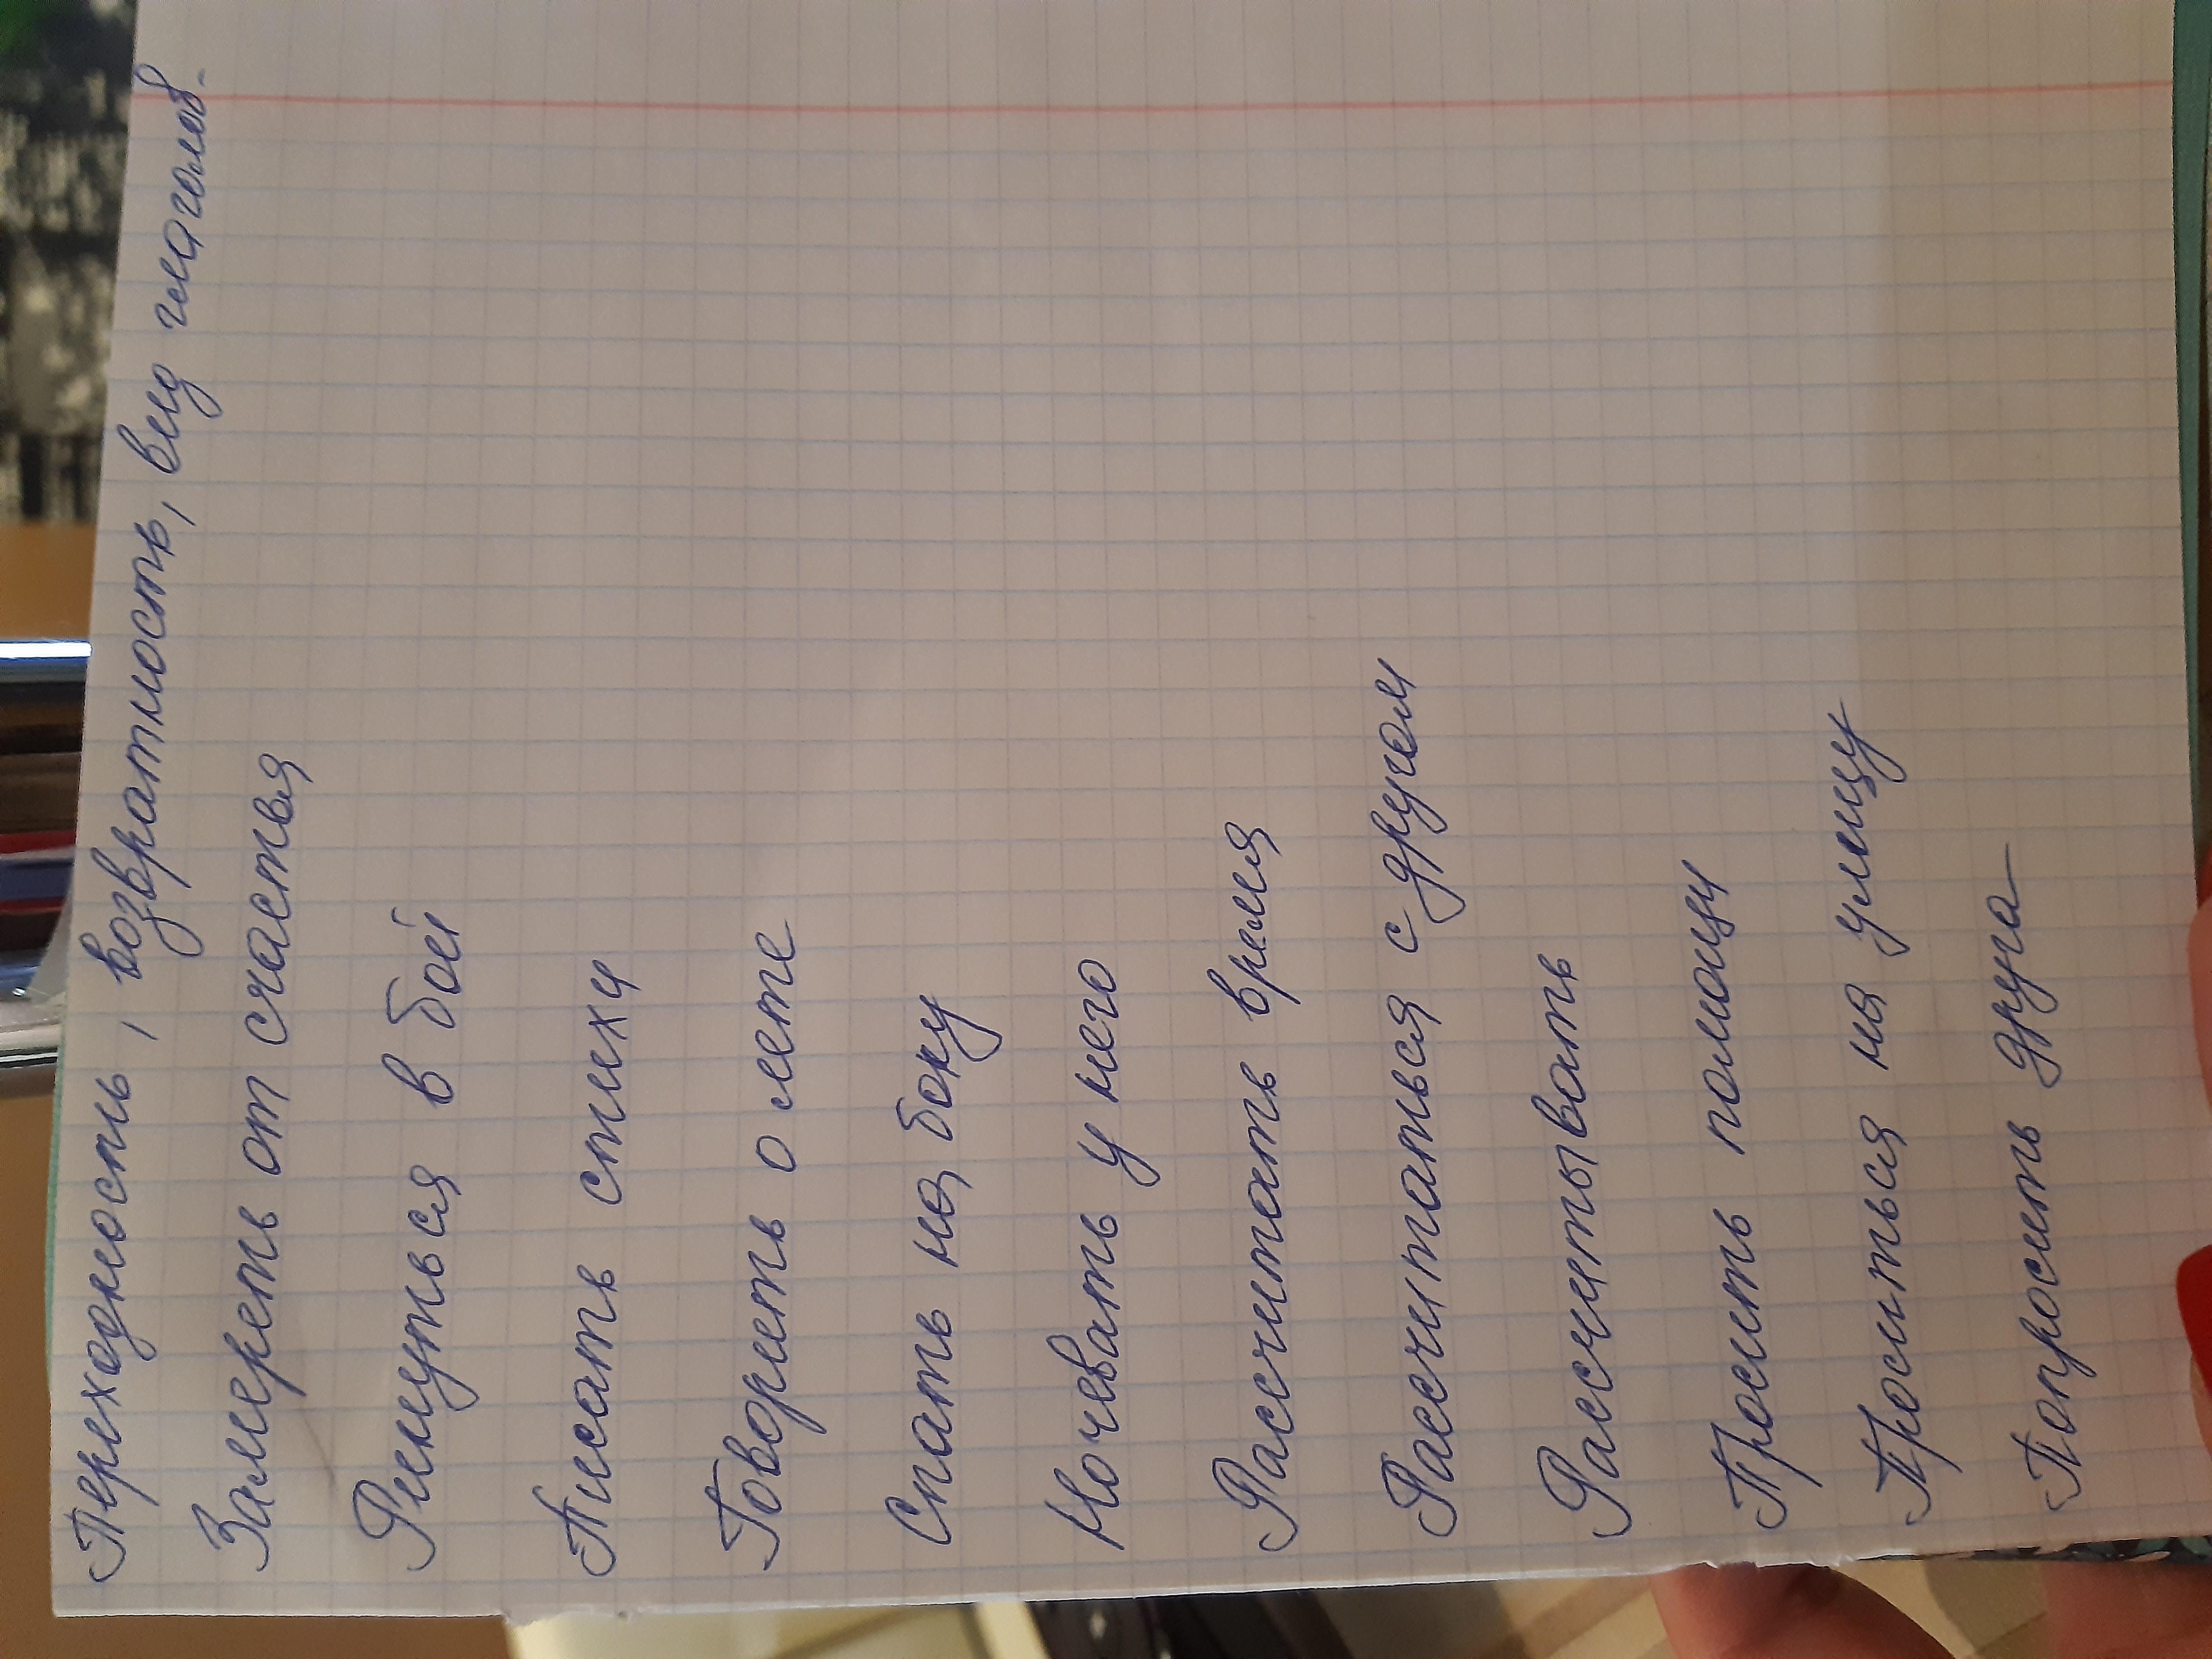 Переходность, возвратность, вид глаголов.
Замереть от счастья
Ринуться в бой
Писать стихи
Говорить о лете
Спать на боку
Ночевать у него
Рассчитать время
Рассчитаться с другом
Рассчитывать
Просить помощи
Проситься на улицу
Попросить друга